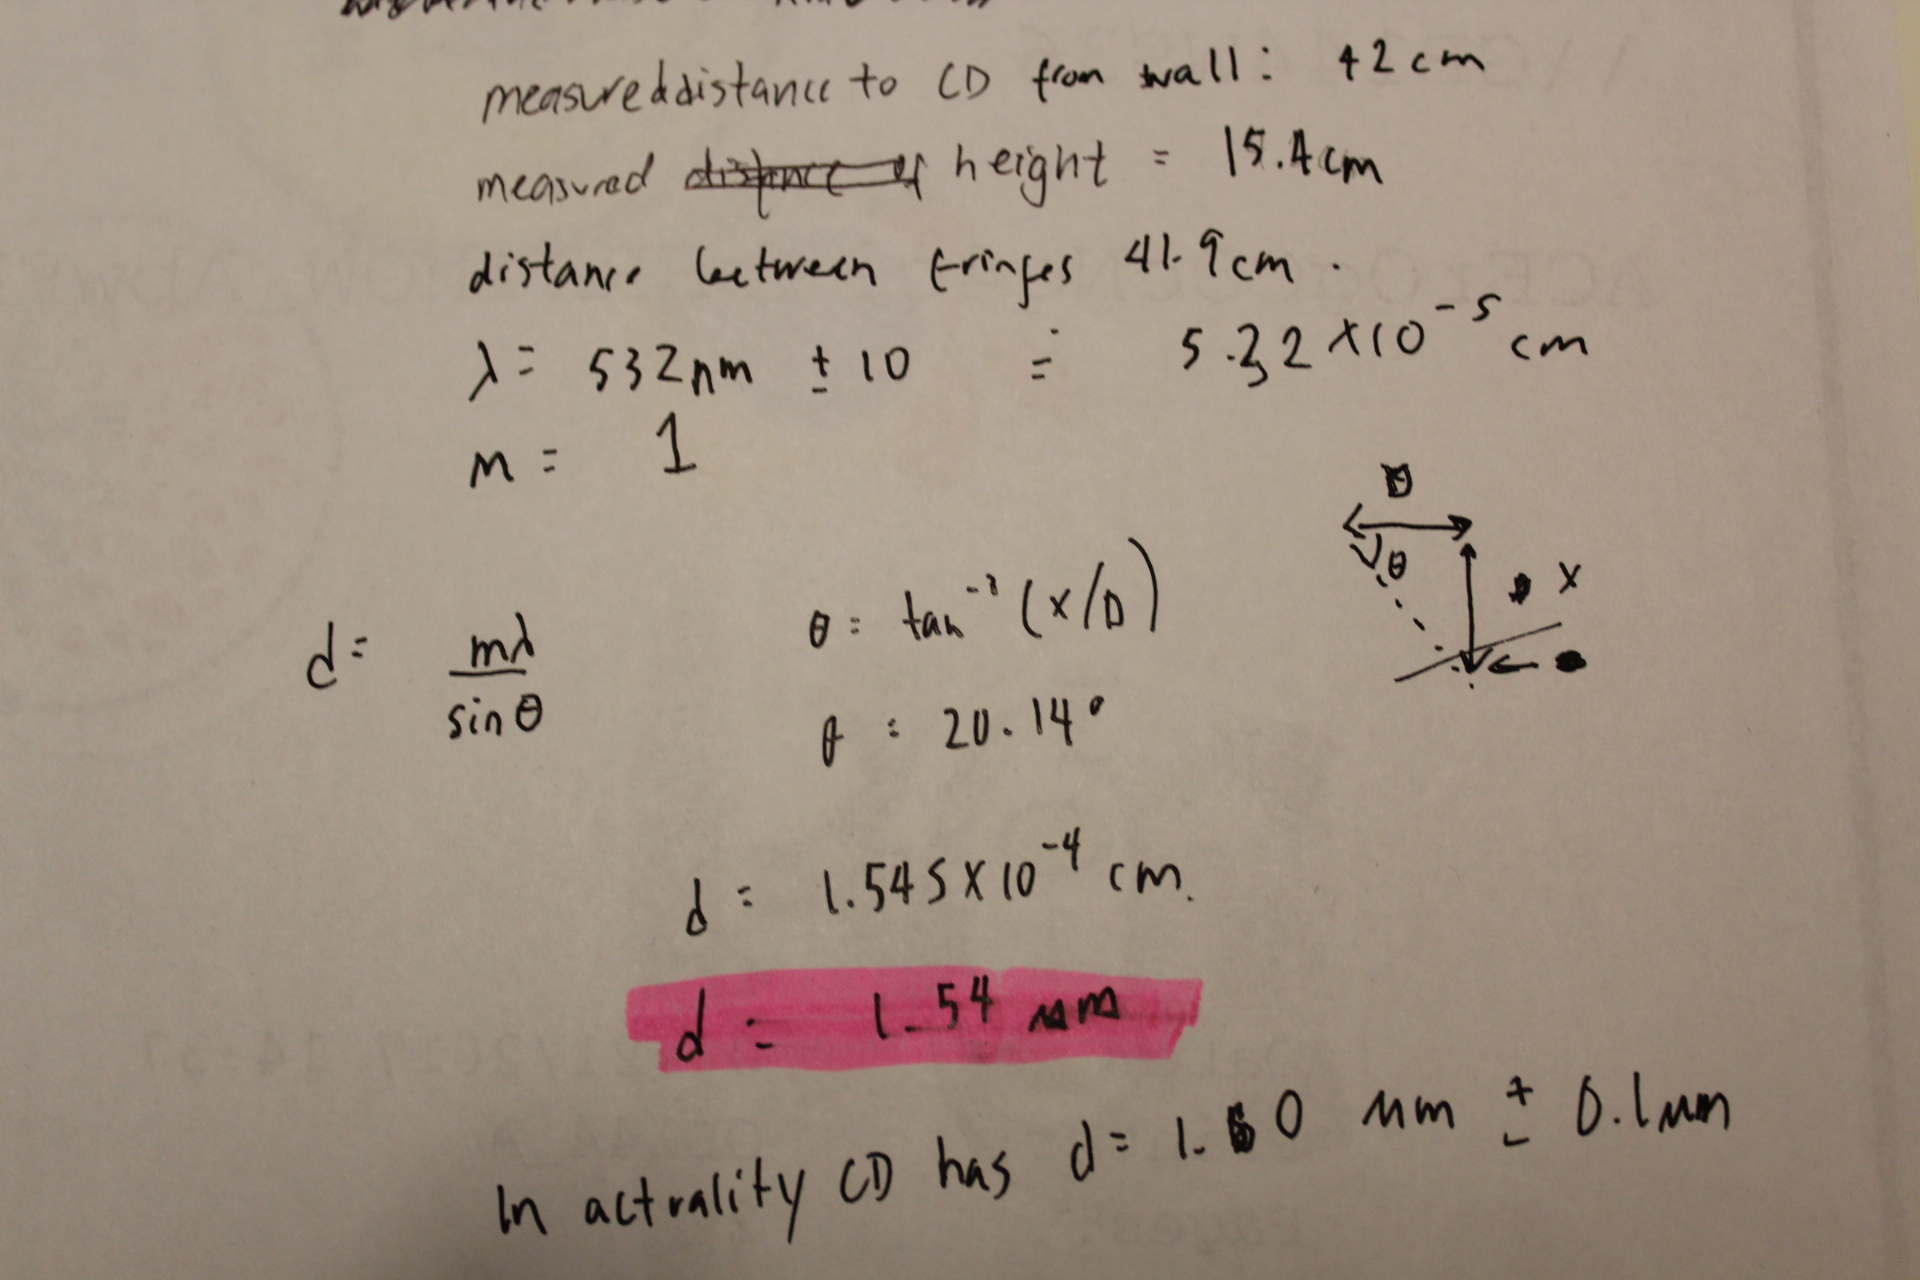 measured distance to CD from wall: 42cm
measured distance of height = 15.4cm
distance between fringes 41.9cm.
λ = 532nm ± 10 = 5.32 ×10⁻⁵ cm
m = 1
D
θ
x
d = mλ / sin θ
θ = tan⁻¹ (x/D)
θ = 20.14°
d = 1.545 X 10⁻⁴ cm.
d = 1.54 μm
In actuality CD has d = 1.60 μm ± 0.1 μm